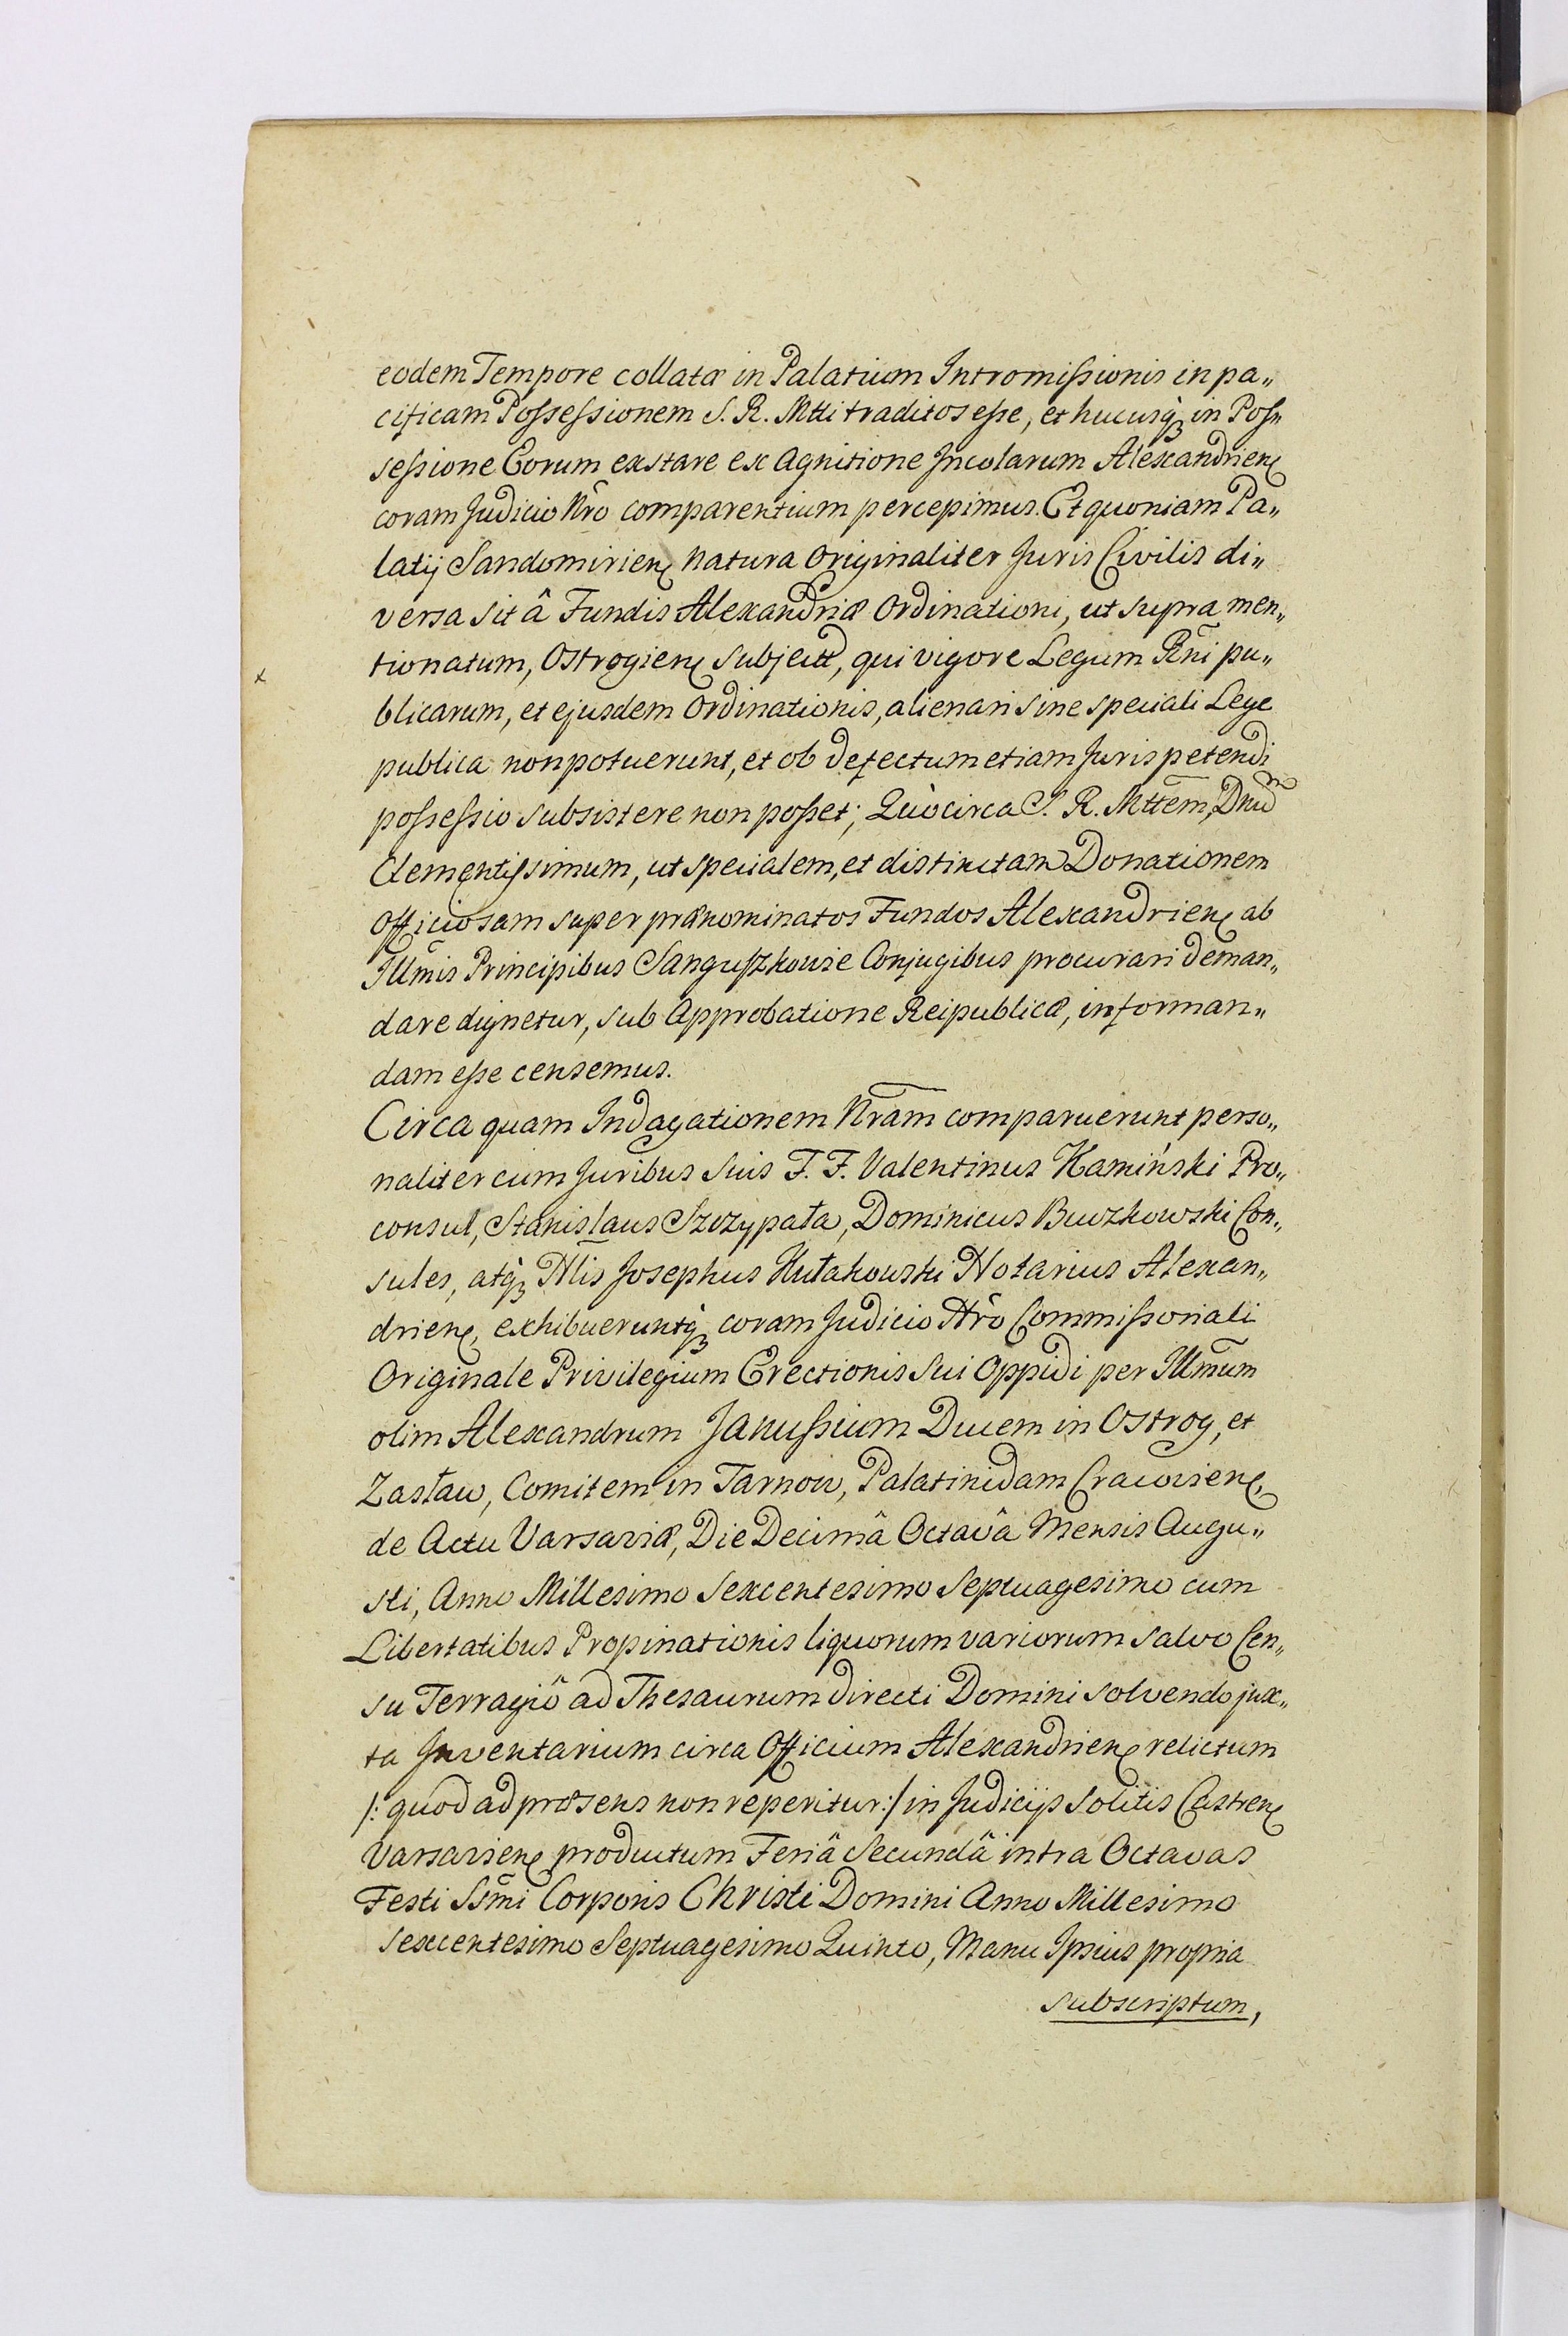 eodem Tempore collatæ in Palatium Intromissionis in pa„
cificam Possessionem S. R. Mtti traditos esse, et hucusq; in Pos„
sessione Eorum exstare ex Agnitione Incolarum Alexandrien
coram Judicio Nro comparentium percepimus. Et quoniam Pa„
latij Sandomirien natura Originaliter Juris Civilis di„
versa sit â Fundis Alexandriæ Ordinationi, ut supra men„
tionatum, Ostrogien subject, qui vigore Legum Rni pu„
x
blicarum, et ejusdem Ordinationis, alienari sine speciali Lege
publica non potuerunt, et ob defectum etiam Juris petendi
possessio subsistere non posset; Quòcirca S. R. Mttem, Dnum
Clementissimum, ut specialem, et distinctam Donationem
Officiosam super prænominatos Fundos Alexandrien ab
Illmis Principibus Sanguszkowie Conjugibus procurari deman„
dare dignetur, sub Approbatione Reipublicæ, informan„
dam esse censemus.
Circa quam Indagationem Nram comparuerunt perso„
naliter cum Juribus suis F. F. Valentinus Kamiński Pro„
consul, Stanislaus Szczypała, Dominicus Buczkowski Con„
sules, atq; Nlis Josephus Hułakowski Notarius Alexan„
drien, exhibueruntq; coram Judicio Nro Commissoriali
Originale Privilegium Erectionis sui Oppidi per Illmum
olim Alexandrum Janussium Ducem in Ostrog, et
Zasław, Comitem in Tarnow, Palatinidam Cracovien,
de Actu Varsaviæ, Die Decimâ Octavâ Mensis Augu„
sti, Anno Millesimo Sexcentesimo Septuagesimo cum
Libertatibus Propinationis liquorum variorum salvo Cen„
su Terragiô ad Thesaurum directi Domini solvendo jux„
ta Inventarium circa Officium Alexandrien relictum
/: quod ad præsens non reperitur :/ in Judicijs solitis Castren
Varsavien productum Feriâ Secundâ intra Octavas
Festi Ssmi Corporis Christi Domini Anno Millesimo
Sexcentesimo Septuagesimo Quinto, Manu Ipsius propria
subscriptum,